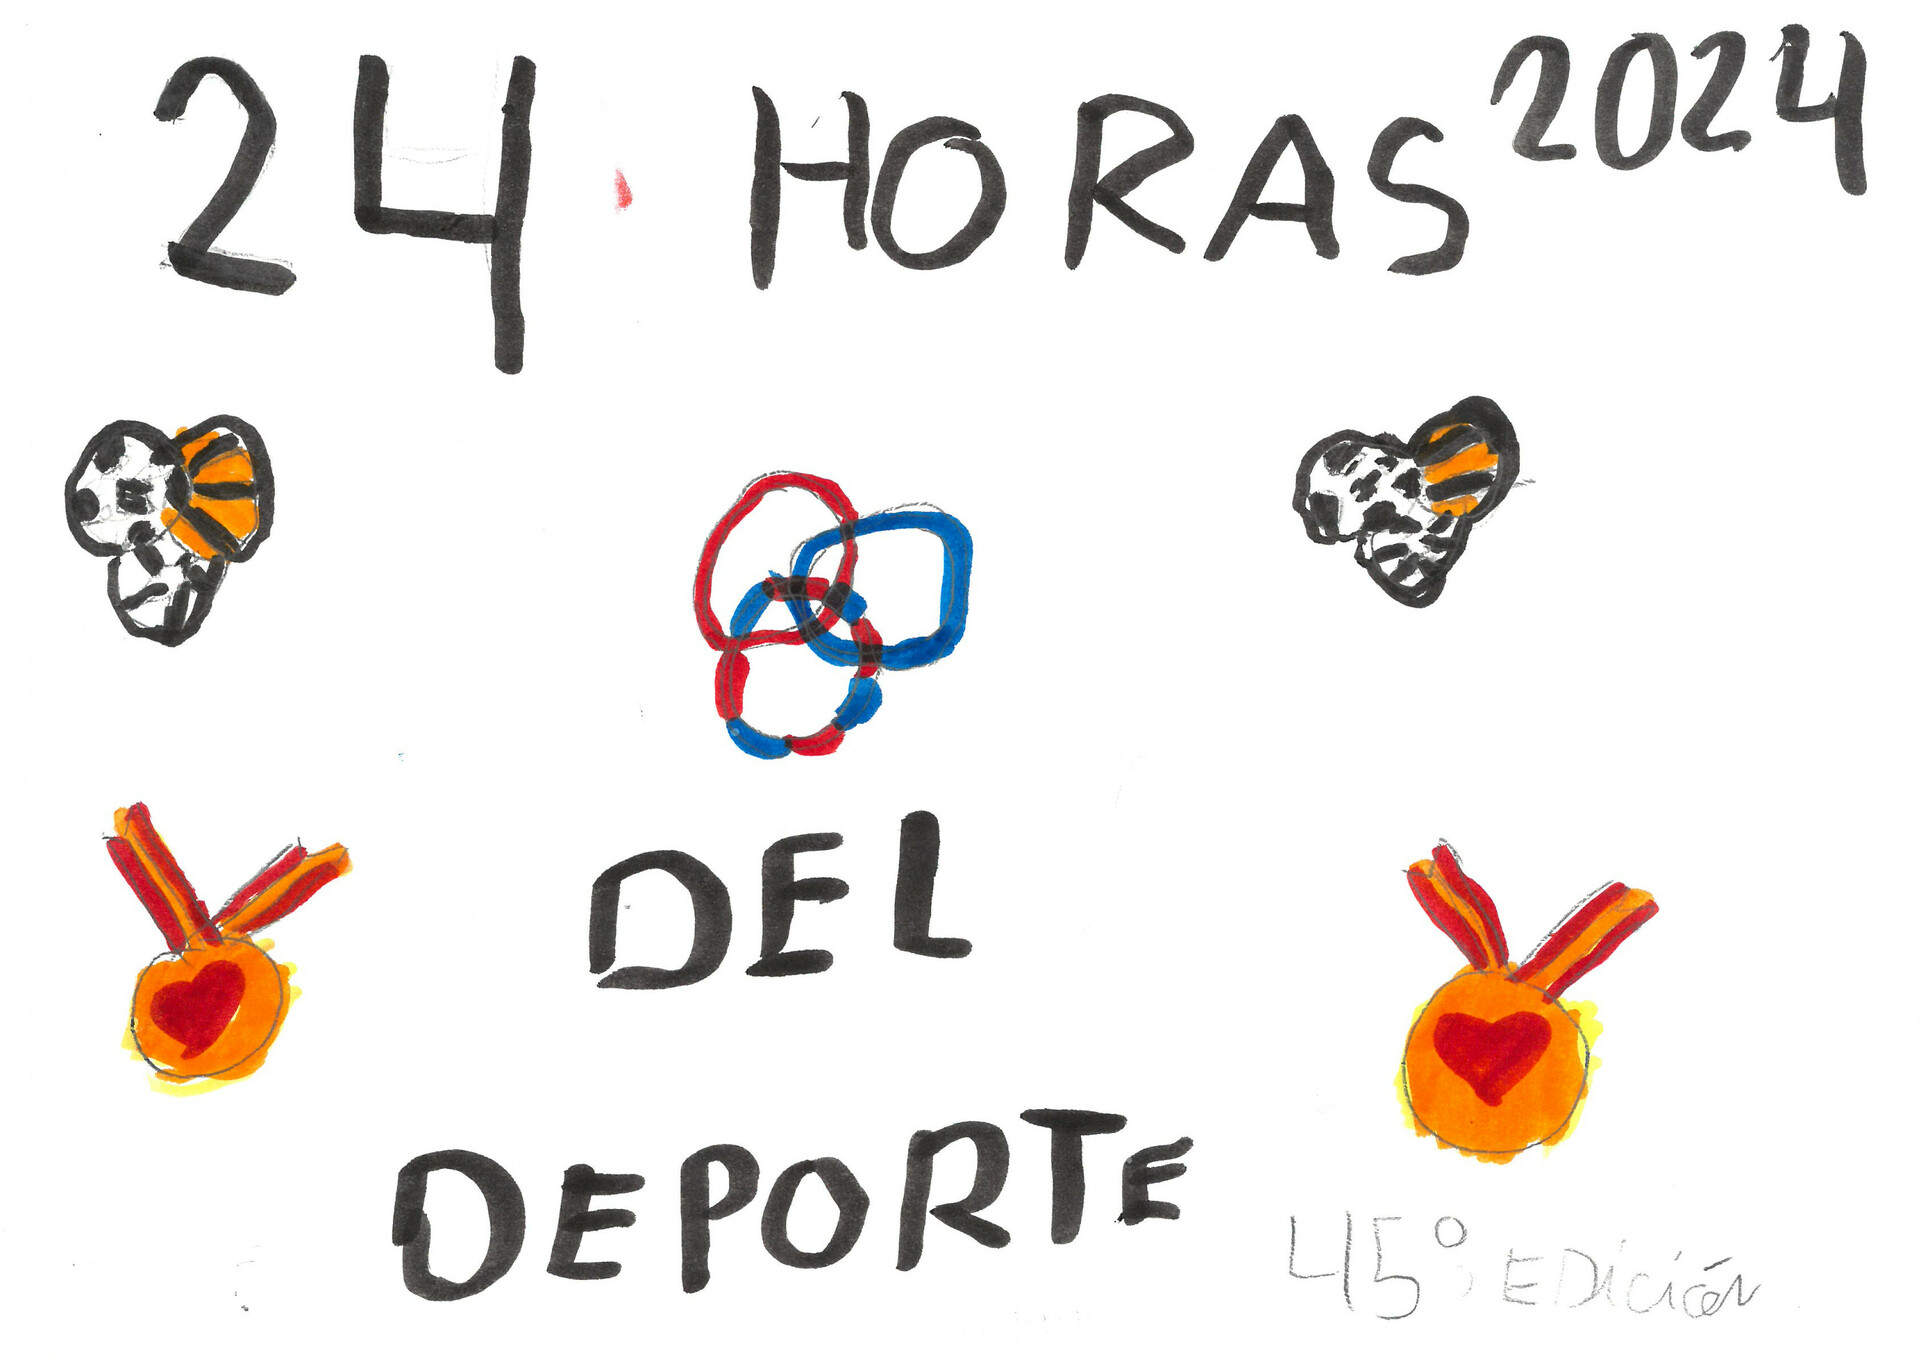 24 HORAS 2024
DEL
DEPORTE
45º EDiCión